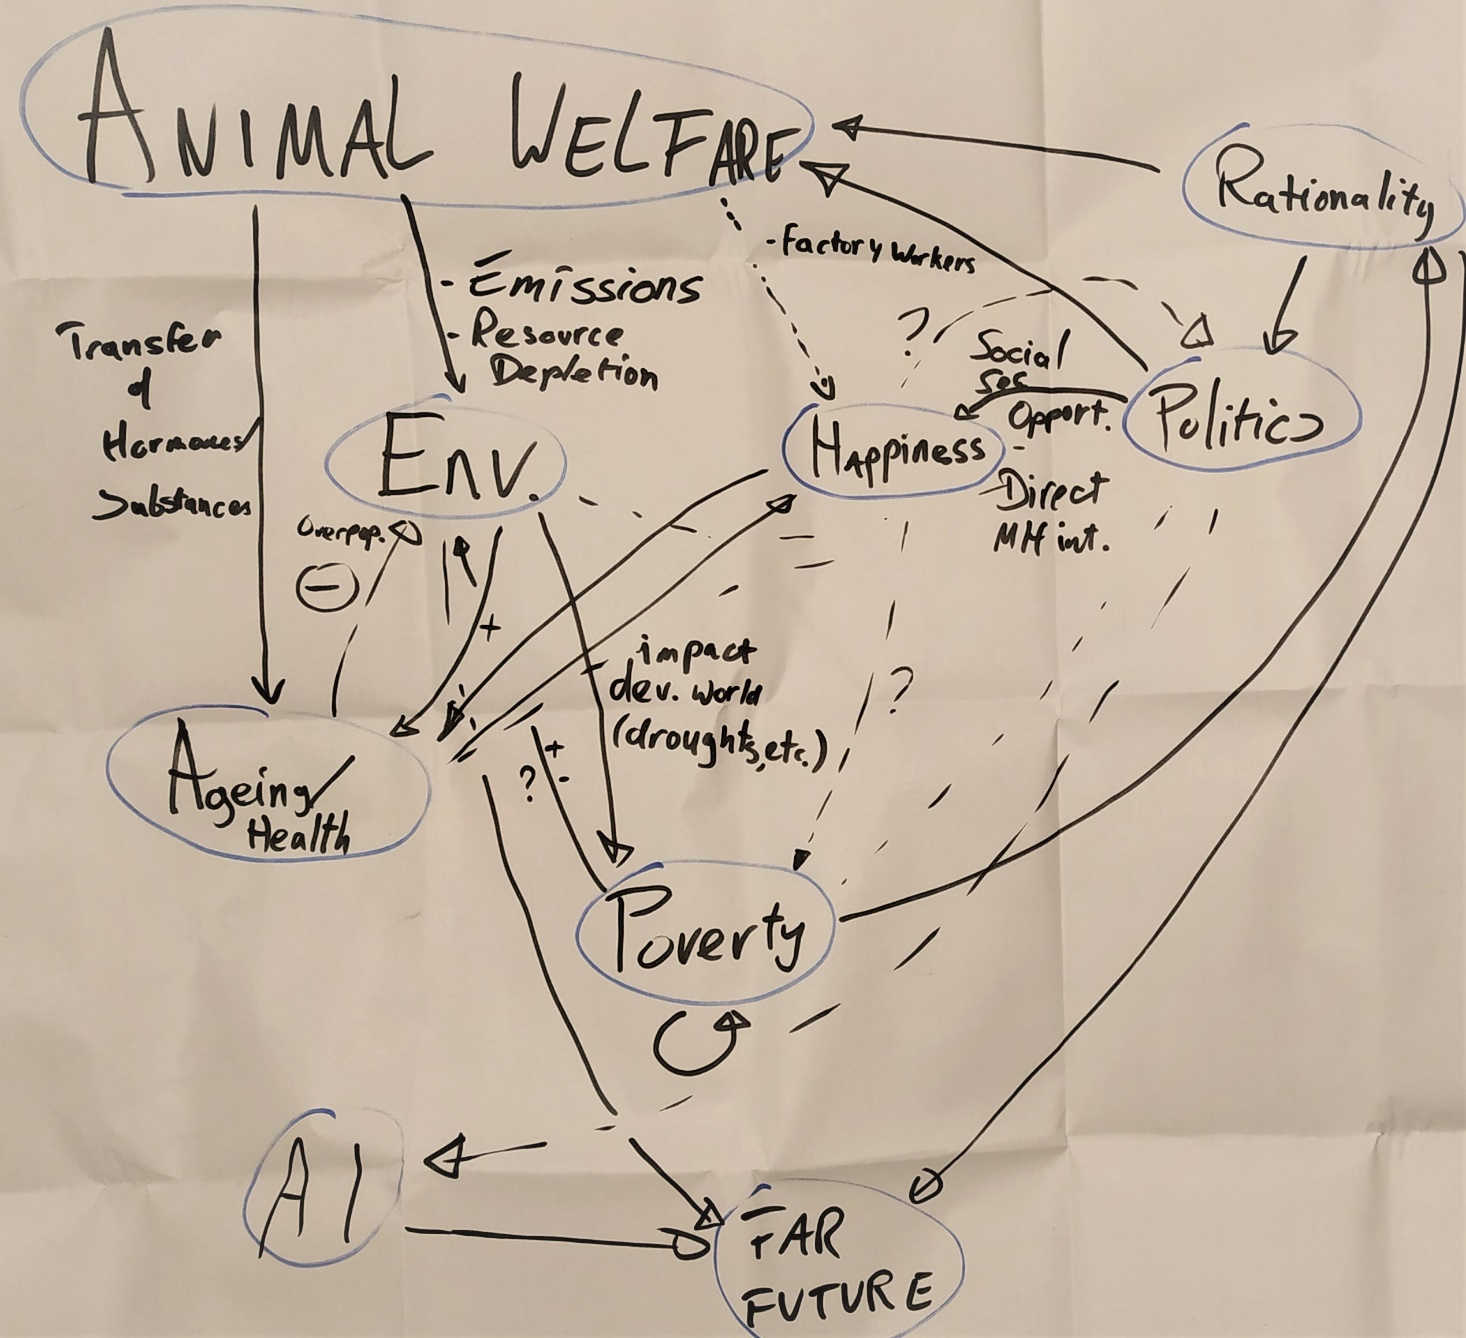 ANIMAL WELFARE
Rationality
- Factory Workers
- Emissions
- Resource
Depletion
Transfer
of
Hormones/
Substances
?
Social
Ses
Opport.
Politics
Env.
Happiness
-
- Direct
MH int.
Overpop.
-
+
impact
dev. world
(droughts, etc.)
?
Ageing/
Health
+
-
?
Poverty
AI
FAR
FUTURE